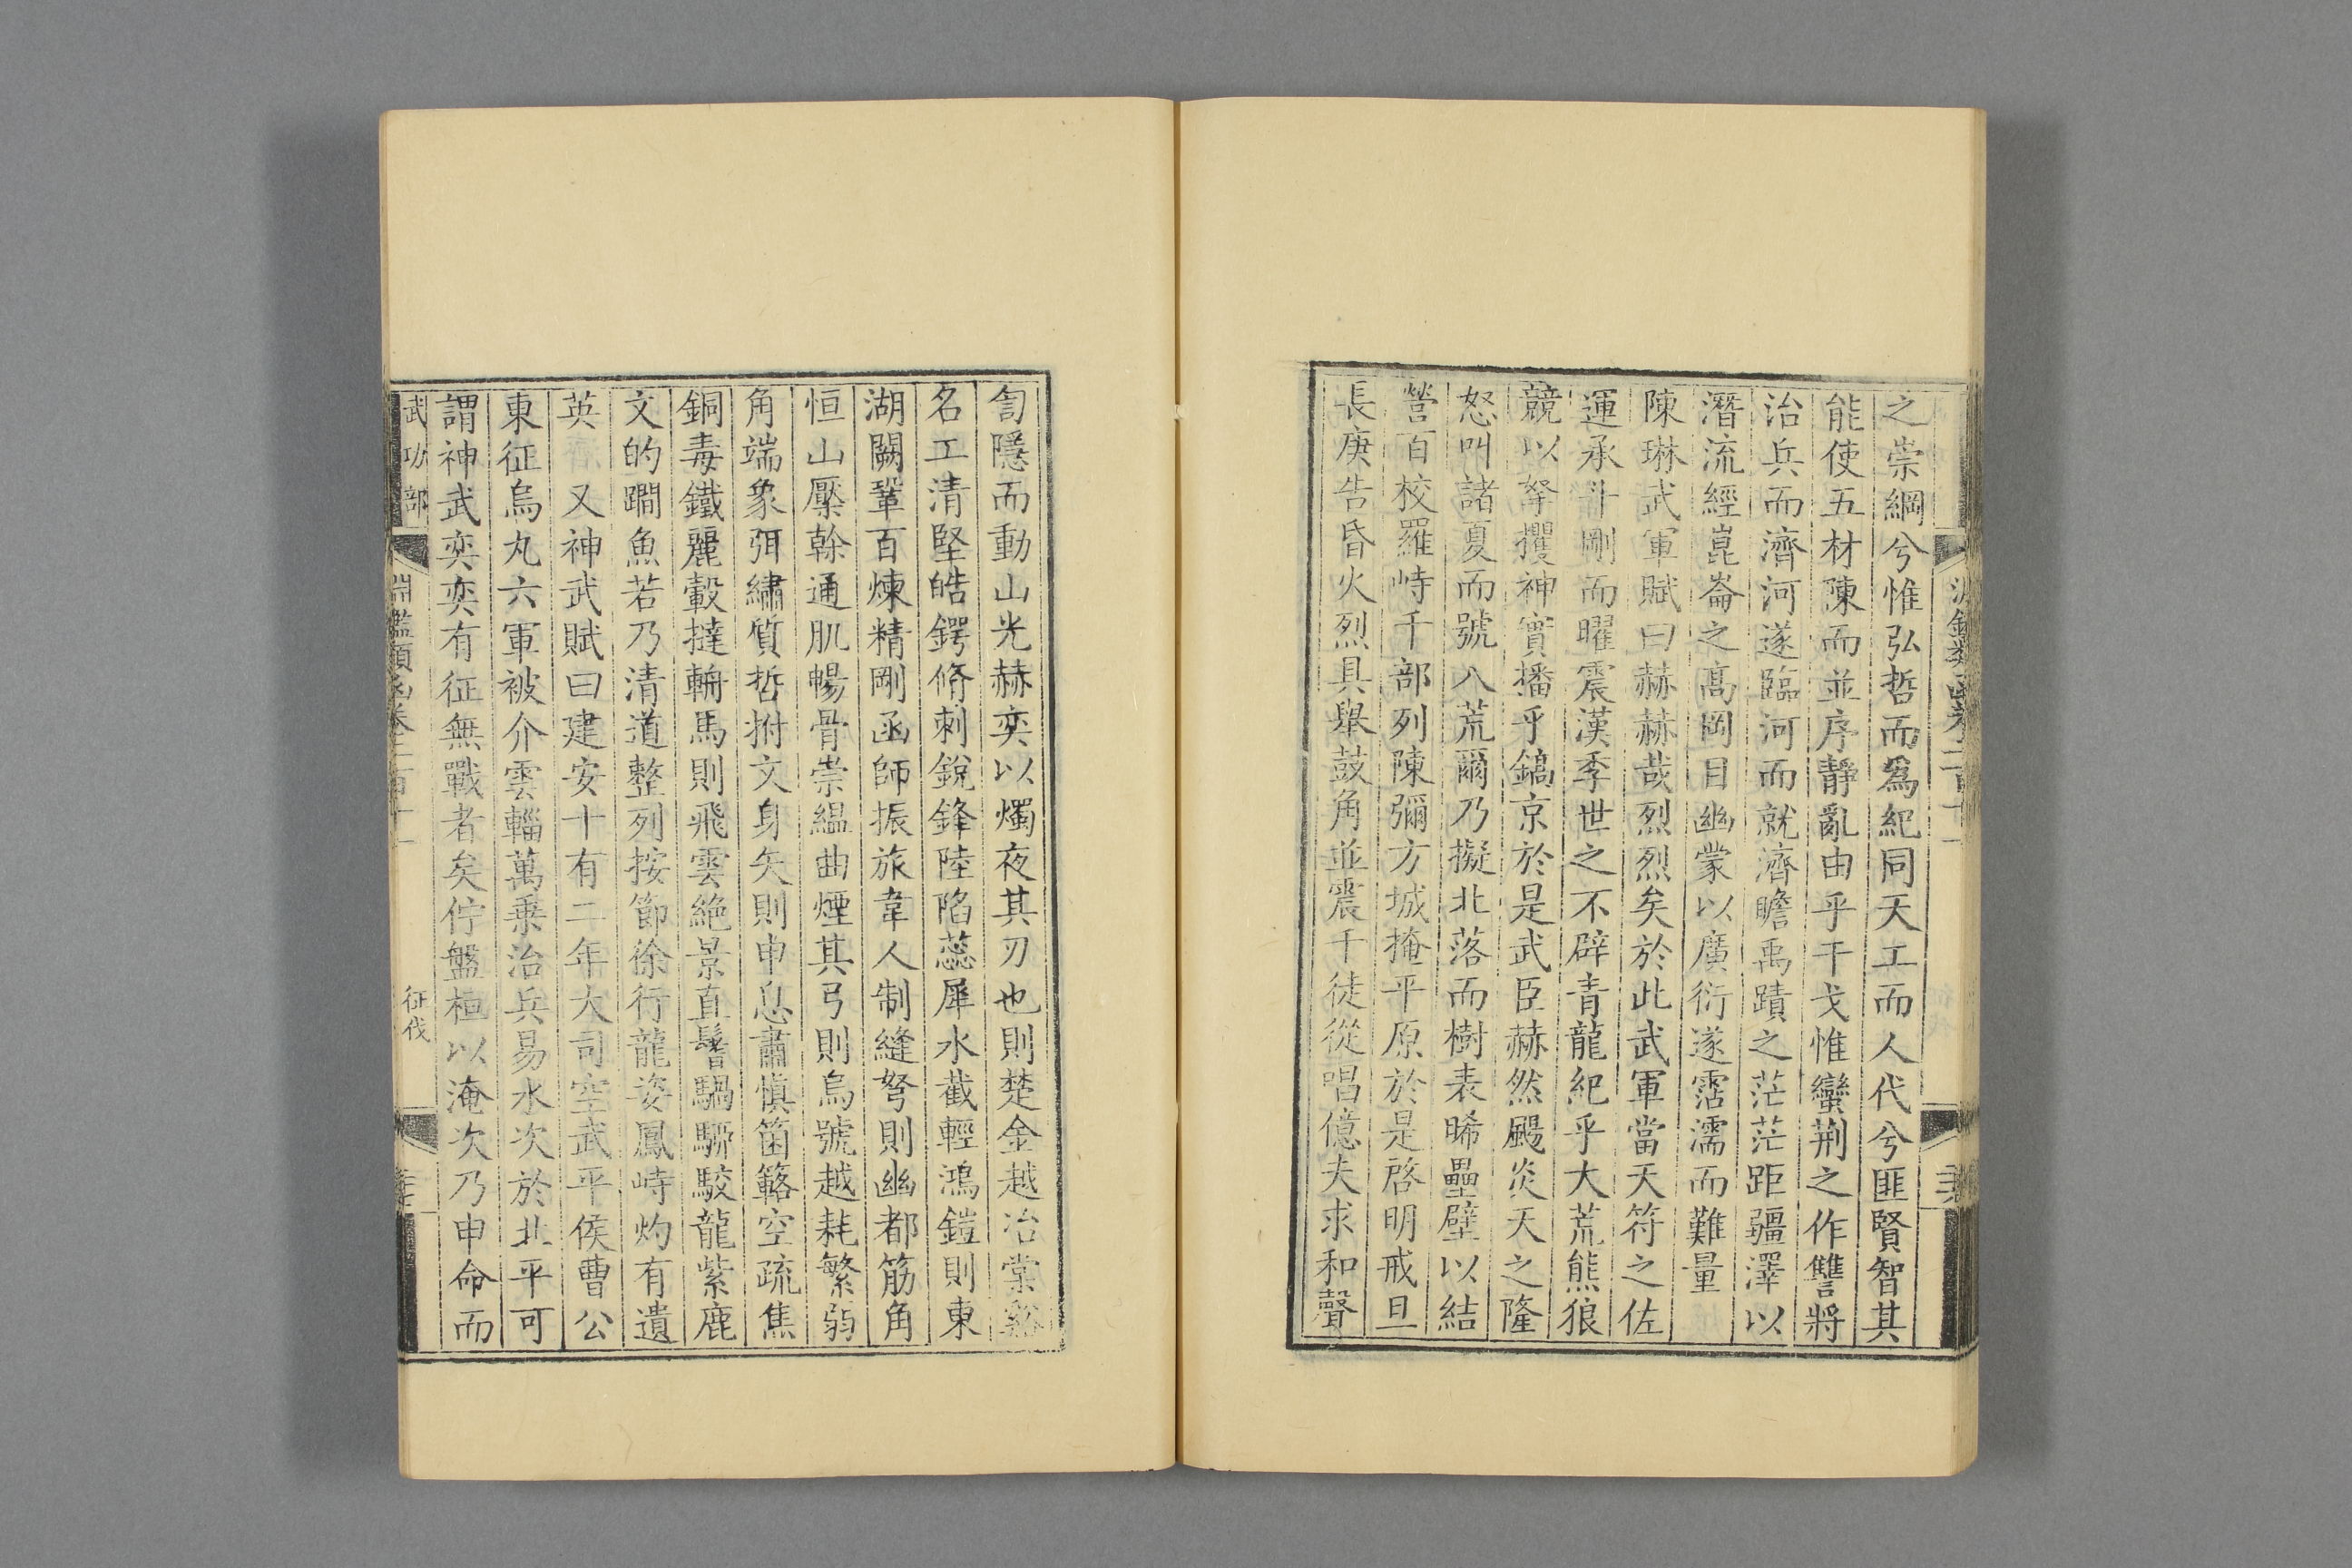 之崇綱兮惟弘哲而爲紀同天工而人代兮匪賢智其
能使五材陳而並序靜亂由乎干戈惟蠻荆之作讐將
治兵而濟河遂臨河而就濟瞻禹蹟之茫茫距疆澤以
潛流經崑崙之髙岡目幽蒙以廣衍遂霑濡而難量
陳琳武軍賦曰赫赫哉烈烈矣於此武軍當天符之佐
運承斗剛而曜震漢季世之不辟青龍紀乎大荒熊狼
競以拏攫神寳播乎鎬京於是武臣赫然颺炎天之隆
怒叫諸夏而號八荒爾乃擬北落而樹表晞壘壁以結
營百校羅峙千部列陳彌方城掩平原於是啓明戒旦
長庚告昏火烈具舉鼓角並震千徒從唱億夫求和聲
訇隱而動山光赫奕以燭夜其刃也則楚金越冶棠谿
名工清堅皓鍔脩刺銳鋒陸陷蕊犀水截輕鴻鎧則東
湖闕鞏百煉精剛函師振旅韋人制縫弩則幽都筋角
恒山檿幹通肌暢骨崇緼曲煙其弓則烏號越耗繁弱
角端象弭繡質晢拊文身矢則申息肅慎箘簵空疏焦
銅毒鐵麗轂撻輈馬則飛雲絶景直鬐騧駵駮龍紫鹿
文的瞷魚若乃清道整列按節徐行龍姿鳳峙灼有遺
英 又神武賦曰建安十有二年大司空武平侯曹公
東征烏丸六軍被介雲輜萬乗治兵易水次於北平可
謂神武奕奕有征無戰者矣佇盤桓以淹次乃申命而
武功部
淵鑑類函卷二百十一
征伐